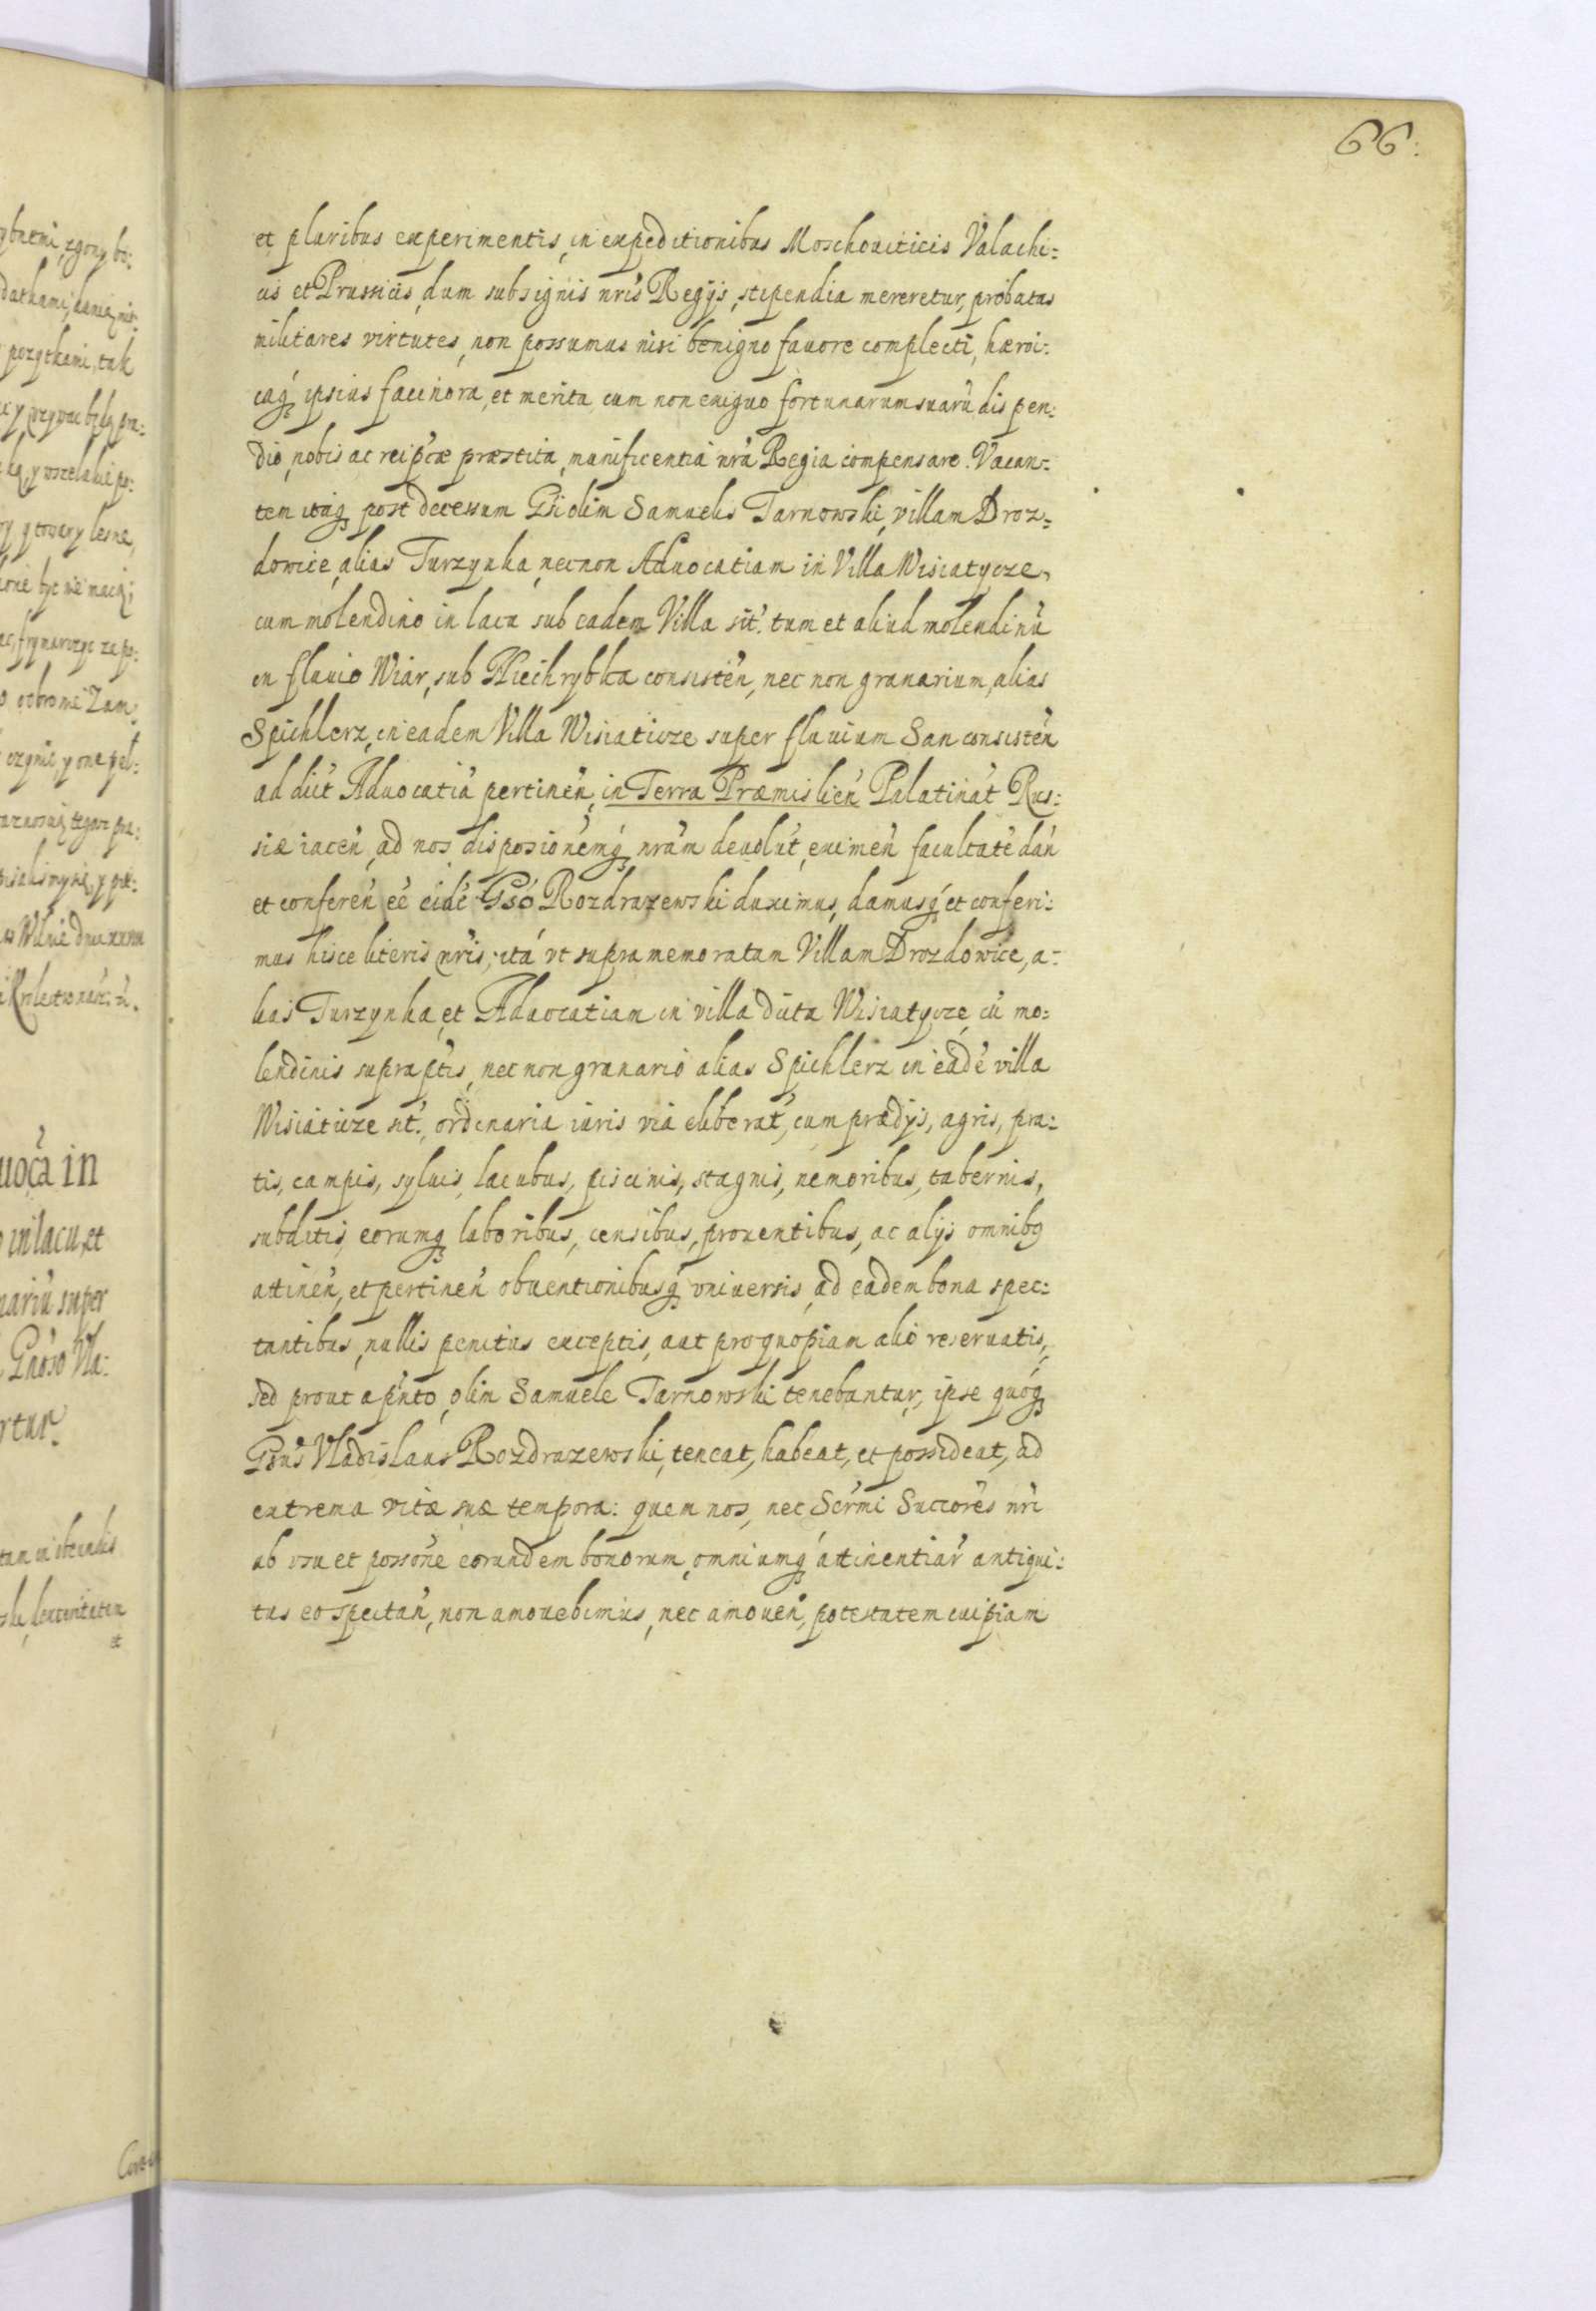 66.
et pluribus experimentis, in expeditionibus Moschouiticis Valachi:
cis et Prussicis, dum sub signis nris Regijs, stipendia mereretur, probatas
militares virtutes, non possumus nisi benigno fauore complecti, hæroi:
caq; ipsius facinora, et merita cum non exiguo fortunarum suarũ dispen:
dio, nobis ac reipcæ præstita, munificentia nrã Regia compensare. Vacan:
tem itaq; post decessum Gsi olim Samuelis Tarnowski, villam Droz:
dowice, alias Turzynka, necnon Aduocatiam in Villa Wisiatycze,
cum molendino in lacu sub eadem Villa sit. tum et aliud molendinũ
in fluuio Wiar, sub Hiechrybka consisteñ, nec non granarium, alias
Spichlerz, in eadem Villa Wisiaticze super fluuium San consisteñ
ad dict Aduocatiã pertineñ, in Terra Præmislieñ Palatinat Rus:
siæ iaceñ, ad nos dispositionemq; nram deuolut, eximeñ facultatẽ dañ
et confereñ eẽ eidẽ Gsõ Rozdrazewski duximus, damusq; et conferi:
mus hisce literis nris, ita vt supra memoratam Villam Drozdowice, a:
lias Turzynka, et Aduocatiam in villa dicta Wisiatycze, cũ mo:
lendinis supraptis, nec non granario alias Spichlerz in eadẽ villa
Wisiaticze sit., ordinaria iuris via eliberat, cum prædijs, agris, pra:
tis, campis, syluis, lacubus, piscinis, stagnis, nemoribus, tabernis,
subditis, eorumq; laboribus, censibus, prouentibus, ac alijs omnibq
attineñ, et pertineñ obuentionibusq; vniuersis, ad eadem bona spec:
tantibus, nullis penitus exceptis, aut pro quopiam alio reseruatis,
sed prout a pñto, olim Samuele Tarnowski tenebantur, ipse quoq;
Gsus Vladislaus Rozdrazewski, teneat, habeat, et possideat, ad
extrema vitæ suæ tempora: quem nos, nec Sermi Succores nri
ab vsu et possone eorundem bonorum, omniumq; attinentiar antiqui:
tus eo spectañ, non amouebimus, nec amoueñ, potestatem cuipiam